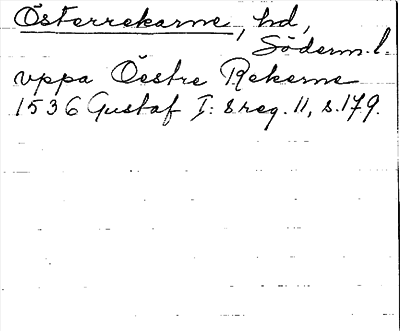 Österrekarne, hd,
Söderm. l.
vppa Öestre Rekerne
1536 Gustaf I: s reg. 11, s. 179.